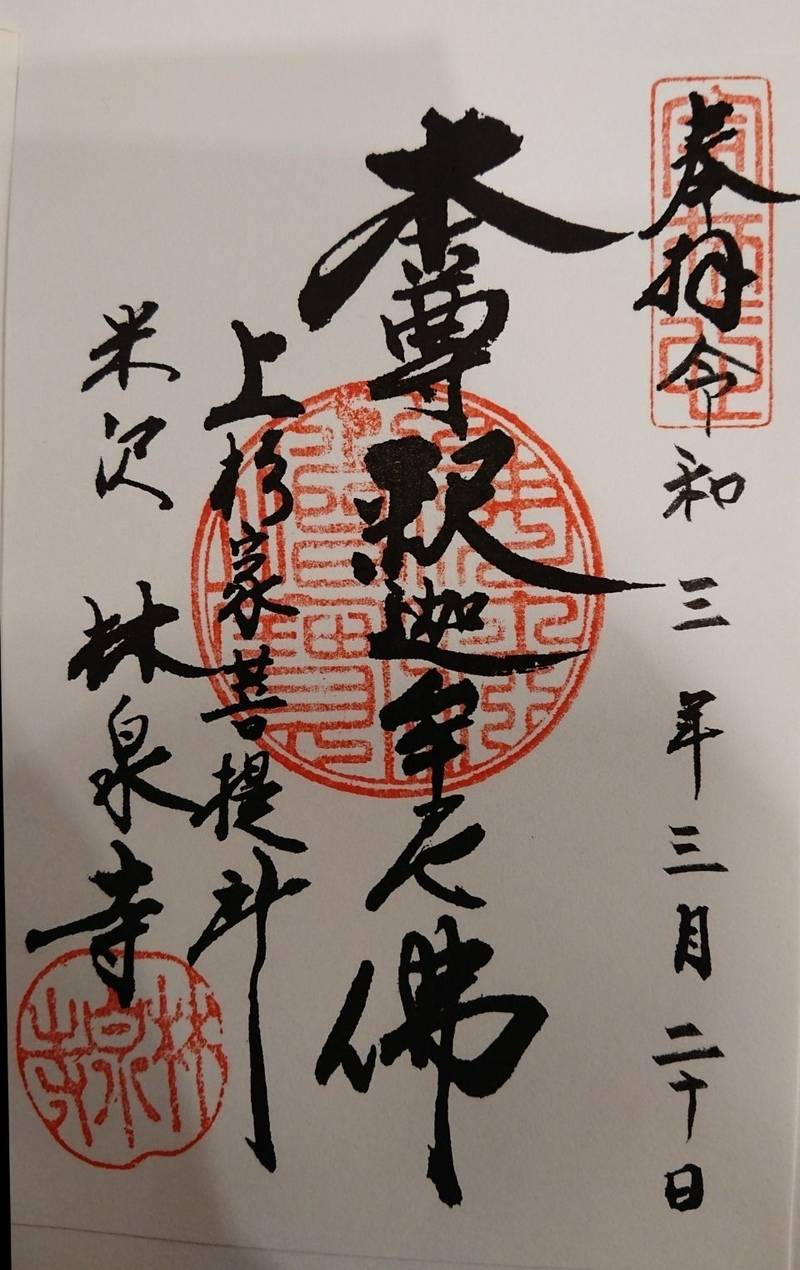 奉拝 令和三年三月二十日
本尊釈迦牟尼佛
上杉家菩提所
米沢 林泉寺
林泉寺